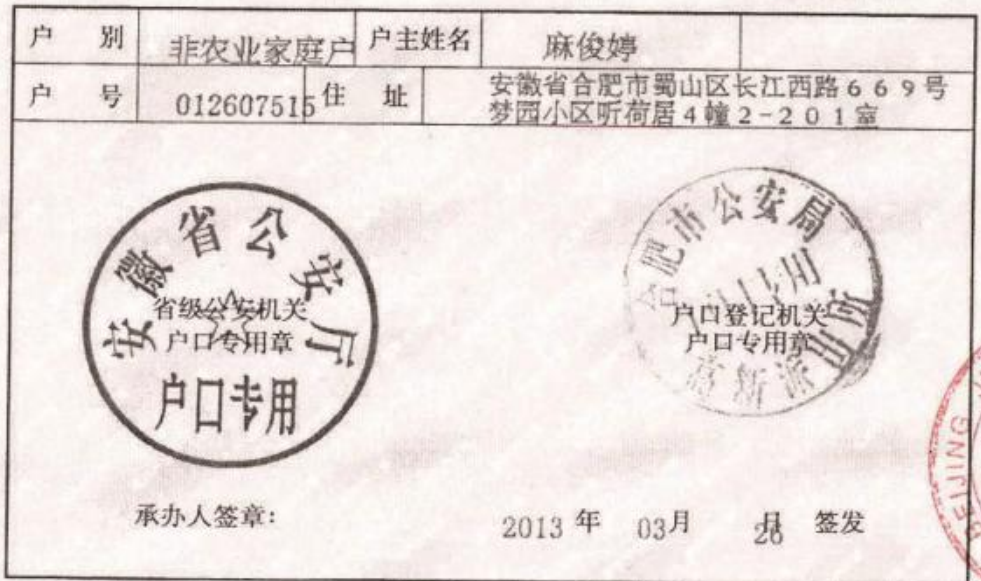 户 别 非农业家庭户 户主姓名 麻俊婷
户 号 012607515 住 址 安徽省合肥市蜀山区长江西路669号
梦园小区听荷居4幢2-201室
安徽省公安厅
省级公安机关
户口专用章
户口专用
合肥市公安局
户口专用
户口登记机关
户口专用章
高新派出所
承办人签章：
2013 年 03月 26 日 签发
BEIJING